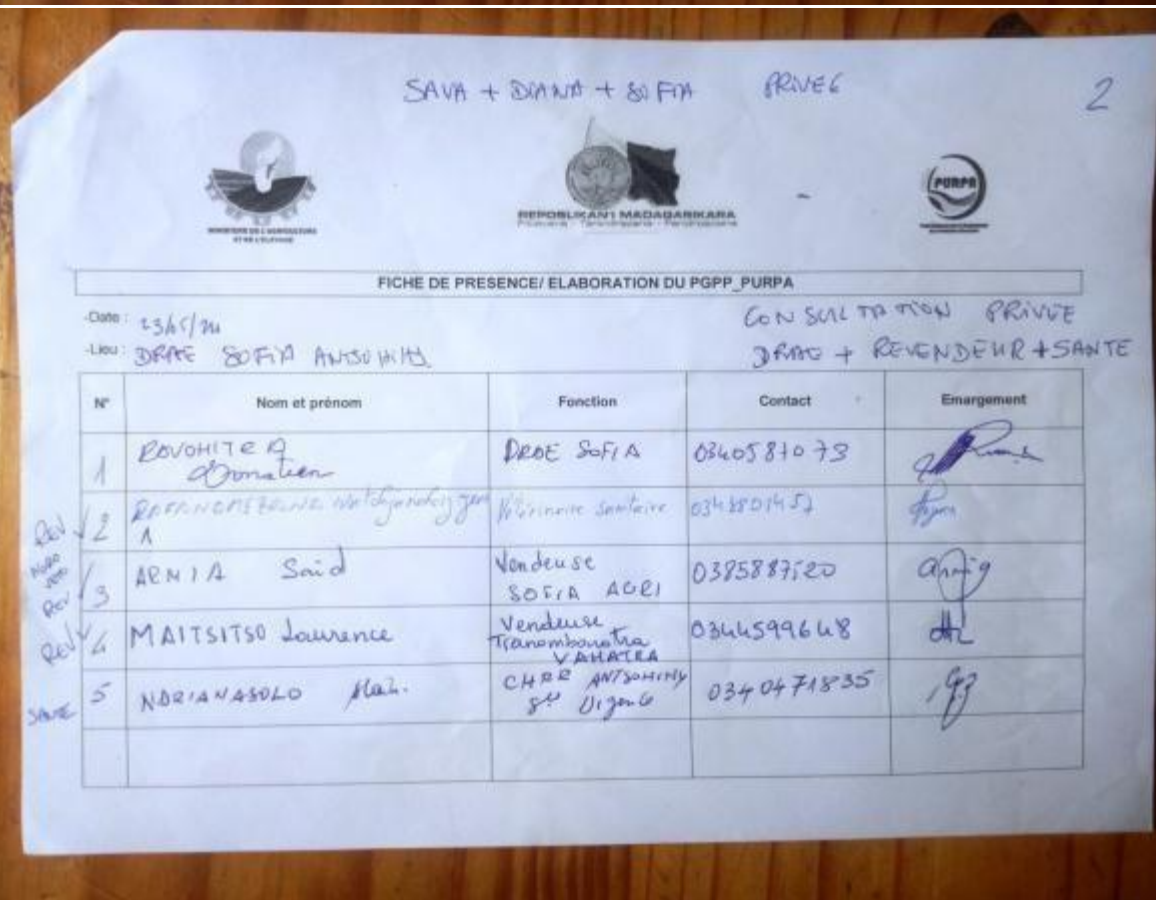 SAVA + DIANA + SOFIA PRIVEE
2
MINISTERE DE L'AGRICULTURE
ET DE L'ELEVAGE
REPOBLIKAN'I MADAGASIKARA
Fitiavana - Tanindrazana - Fandrosoana
PURPA
FICHE DE PRESENCE/ ELABORATION DU PGPP_PURPA
-Date : 23/05/24
CONSULTATION PRIVEE
-Lieu : DRAE SOFIA ANTSOHIHY
DRAE + REVENDEUR + SANTE
N° Nom et prénom Fonction Contact Emargement
1 ROVOHITRA Donatien DRAE SOFIA 0340587073
Rev 2 Vétérinaire Sanitaire
Rev 3 ARMIA Said Vendeuse SOFIA AGRI 0385887520
Rev 4 MAITSITSO Laurence Vendeuse Tranombarotra VAHATRA 0344599648
SANTE 5 NDRIANASOLO CHRR ANTSOHIHY Urgence 0340471835